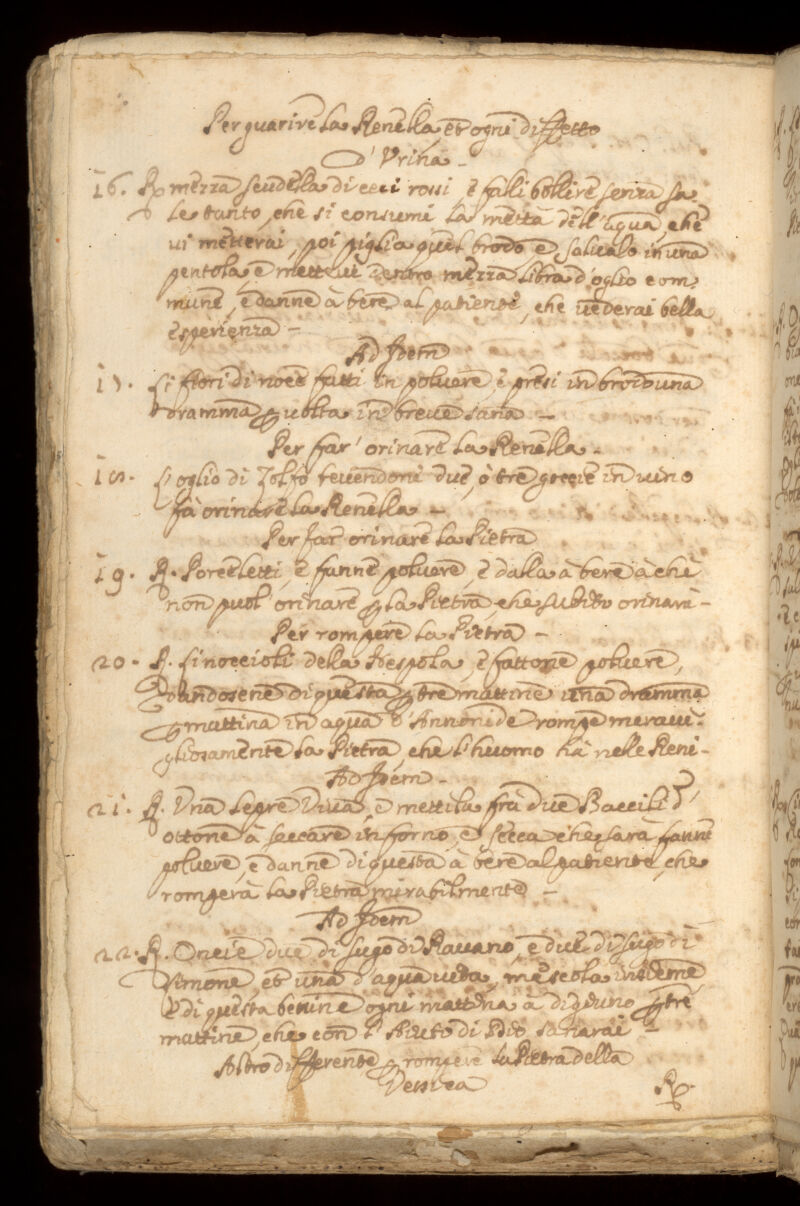 Per guarire la Renella, et ogni diffetto
d'Vrina -
16. R. mezza scudella di ceci rossi, è falli bollire senza sa
le tanto, che si consumi la metà dell'aqua, che
ui metterai, poi piglia quel brodo è salualo in una
pentola, è metteui dentro mezza libra d'oglio com
mune, è danne à bere al patiente, che uederai bella
esperienza -
Ad Idem
17. Li fiori di noce fatti in poluere, è presi in brodo una
dramma p uolta in breue sana -
Per far' orinare la Renella -
18. L'oglio di Zolfo beuendoni due, ò tre goccie in uino
fà orinare la Renella -
Per far orinare la Pietra
19. R. Porcelletti, è fanne poluere, è dalla à bere à chi
non puol' orinare p la Pietra che subito orinarà -
Per rompere la Pietra -
20. R. Li noccioli della Nespola, è fattone poluere,
dandosene di questa p tre mattine una dramma
p mattina in aqua d'Annonide rompe meraui-
gliosamente la Pietra, che l'huomo hà nelle Reni -
Ad Idem -
21. R. Vna Lepre Viua, è mettila frà due Baccili d'
ottone à seccare in forno, è secca che sarà fanne
poluere, è danne di questa à bere al patiente, che
romperà la Pietra mirabilmente -
Ad Idem
22. R. Oncie due di sugo di Rauano, è due di sugo di
Limone, et una d'aqua uita, mescola insieme
è di questa beuine ogni mattina à digiuno p tre
mattine, che con l'Aiuto di Dio sanarai -
Altro differente p rompere la Pietra della
Vessica
R.